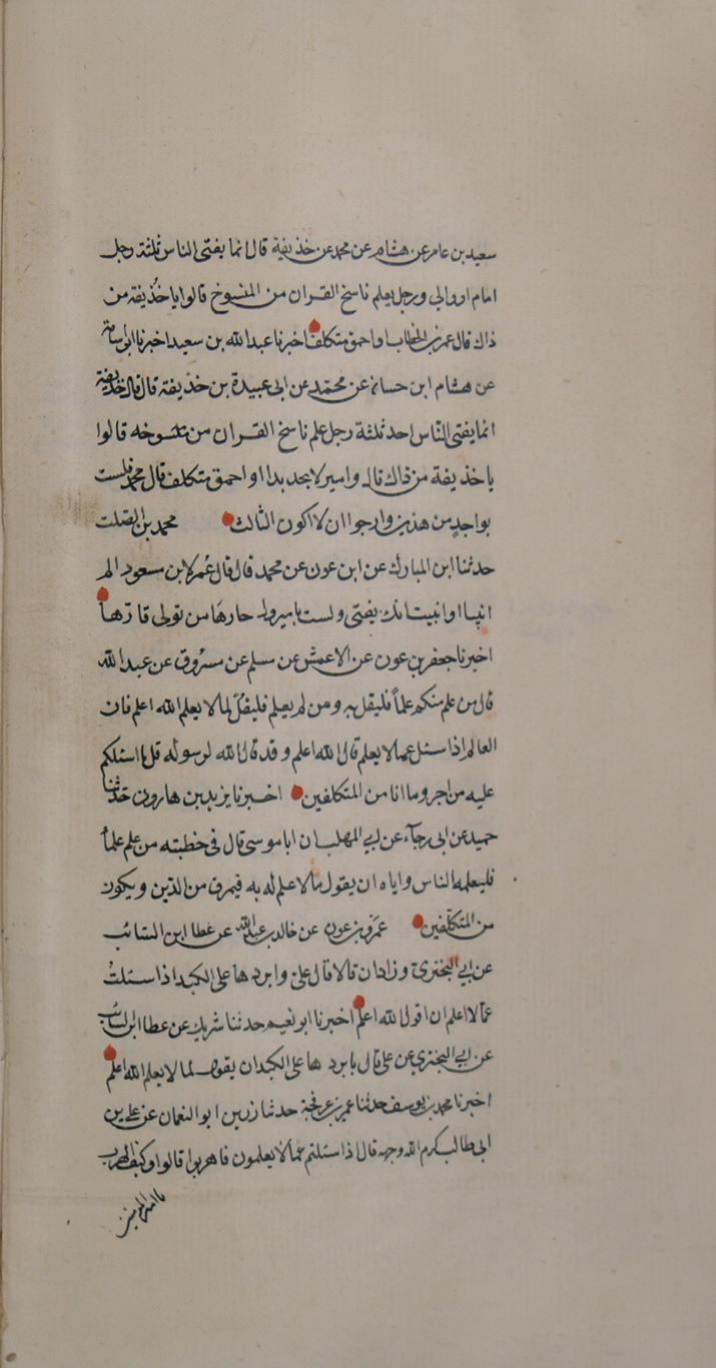 سعيد بن عامر عن هشام عن محمد عن خذيفة قال انما يفتى الناس ثلثة رجل
امام او والي ورجل يعلم ناسخ القران من المنسوخ قالوا يا خُذيفة من
ذاك قال عمر بن الخطاب او احمق متكلف اخبرنا عبد الله بن سعيد اخبرنا ابى سامة
عن هشام ابن حسان عن محمّد عن ابى عبيدة بن خذيفة قال قال خذيفة
انما يفتى النّاس احد ثلثة رجل علم ناسخ القران من منسوخه قالوا
يا خذيفة من ذاك قال وامير لا يجد بدا او احمق متكلف قال محمد فلست
بواحدٍ من هذين وارجوا ان لا اكون الثالث محمد بن الصّلت
حدثنا ابن المبارك عن ابن عون عن محمد قال قال عُمر لابن مسعود الم
انبا او انبيت انك يفتى ولست بامير ول حارهَا من تولى قارّها
اخبرنا جعفر بن عون عن الاعمش عن مسلم عن مسروق عن عبد الله
قال من علم منكم علماً فليقل به ومن لم يعلم فليقل لما لا يعلم الله اعلم فان
العالم اذا سئل عما لا يعلم قال الله اعلم وقد قال الله لرسوله قل ما اسئلكم
عليه من اجر وما انا من المتكلفين اخبرنا يزيد بن هارون حدثنا
حميد عن ابى رجآء عن ابي المهلب ان ابا موسى قال فى خطبته من علم علماً
فليعلمه الناس واياه ان يقول ما لا علم له به فيمرق من الدّين ويكون
من المتكلّفين عَمرو بن عون عن خالد بن عبد الله عن عطا ابن السّائب
عن ابي البخترى وزاذان قالا قال علىّ وابردها على الكبد اذا سئلتُ
عمّا لا اعلم ان اقول الله اعلم اخبرنا ابو نعيم حدثنا شريك عن عطا ابن السائب
عن ابي البخترى عن على قال يا بردها على الكبد ان يقول لما لا يعلم الله اعلم
اخبرنا محمد بن يوسف حدثنا عمير بن عرفجة حدثنا زرين ابو النعمان عن على بن
ابى طالب كرم الله وجهه قال اذا سئلتم عمّا لا يعلمون فاهربوا قالوا وكيف الهرب
يا امير المؤمنين